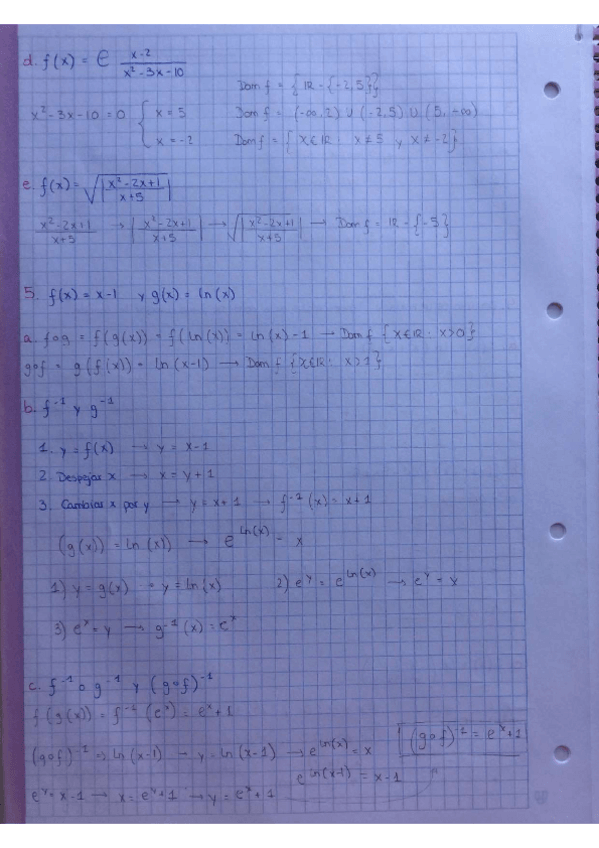 d. f(x) = e^((x-2)/(x²-3x-10))
Dom f = {IR - {-2,5}}
x²-3x-10=0 { x = 5 Dom f = (-∞,2) ∪ (-2,5) ∪ (5,-∞)
x = -2 Dom f = { x∈IR : x≠5 y x≠-2}
e. f(x) = √|(x²-2x+1)/(x+5)|
(x²-2x+1)/(x+5) → |(x²-2x+1)/(x+5)| → √|(x²-2x+1)/(x+5)| → Dom f = IR - {-5}
5. f(x) = x-1 y g(x) = ln(x)
a. f∘g = f(g(x)) = f(ln(x)) = ln(x)-1 → Dom f {x∈IR : x>0}
g∘f = g(f(x)) = ln(x-1) → Dom f {x∈IR : x>1}
b. f⁻¹ y g⁻¹
1. y = f(x) → y = x-1
2. Despejar x → x = y+1
3. Cambiar x por y → y = x+1 → f⁻¹(x) = x+1
(g(x)) = ln(x)) → e^(ln(x)) = x
1) y = g(x) = y = ln(x) 2) e^y = e^(ln(x)) → e^y = x
3) e^x = y → g⁻¹(x) = e^x
c. f⁻¹∘g⁻¹ y (g∘f)⁻¹
f(g(x)) = f⁻¹(e^x) = e^x+1
(g∘f)⁻¹ ⇒ ln(x-1) → y = ln(x-1) → e^(ln(x)) = x (g∘f)⁻¹ = e^x+1
e^(ln(x-1)) = x-1
e^y = x-1 → x = e^y+1 → y = e^x+1